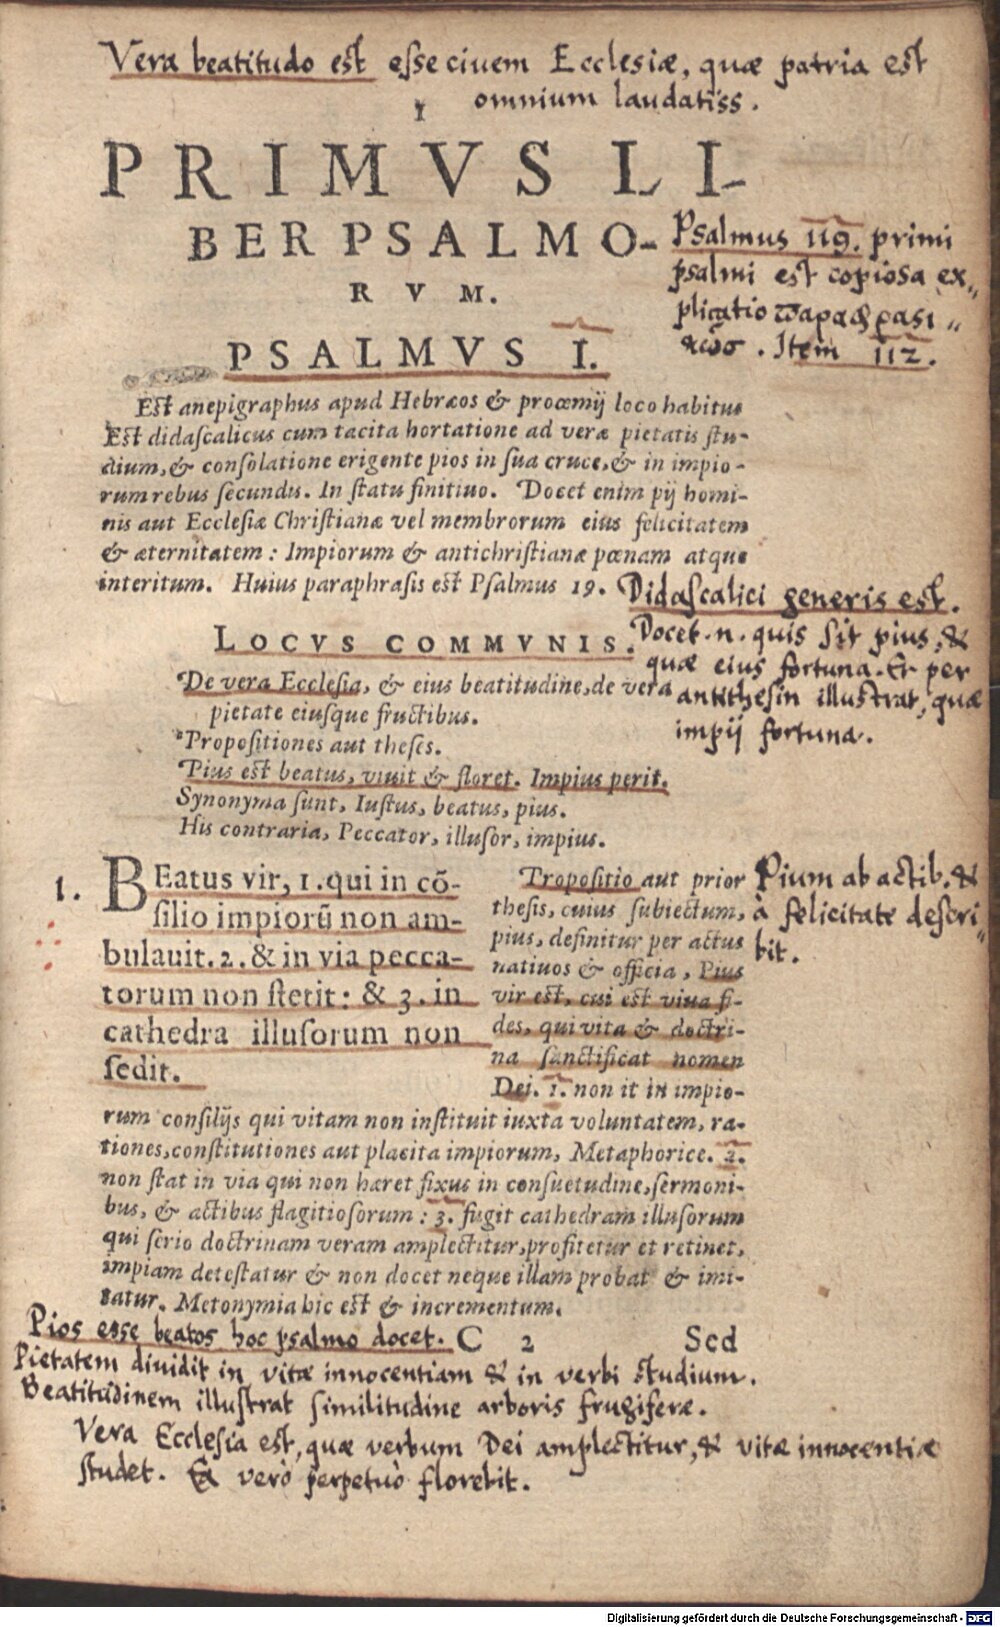 Vera beatitudo est esse ciuem Ecclesiæ, quæ patria est
omnium laudatiss.
PRIMVS LI-
BER PSALMO-
RVM.
PSALMVS I.
Psalmus 119. primi
psalmi est copiosa ex„
plicatio
Item 112.
Est anepigraphus apud Hebræos & proœmij loco habitus
Est didascalicus cum tacita hortatione ad veræ pietatis stu-
dium, & consolatione erigente pios in sua cruce, & in impio-
rum rebus secundis. In statu finitiuo. Docet enim pij homi-
nis aut Ecclesiæ Christianæ vel membrorum eius felicitatem
& æternitatem: Impiorum & antichristianæ pœnam atque
interitum. Huius paraphrasis est Psalmus 19.
Didascalici generis est.
Docet .n. quis sit pius, &
quæ eius fortuna. Et per
antithesin illustrat, quæ
impij fortuna.
LOCVS COMMVNIS.
De vera Ecclesia, & eius beatitudine, de vera
pietate eiusque fructibus.
Propositiones aut theses.
Pius est beatus, viuit & floret. Impius perit.
Synonyma sunt, Iustus, beatus, pius.
His contraria, Peccator, illusor, impius.
1.
BEatus vir, 1. qui in cō-
silio impiorū non am-
bulauit. 2. & in via pecca-
torum non stetit: & 3. in
cathedra illusorum non
sedit.
Propositio aut prior
thesis, cuius subiectum,
pius, definitur per actus
natiuos & officia, Pius
vir est, cui est viua fi-
des, qui vita & doctri-
na sanctificat nomen
Dei. 1. non it in impio-
Pium ab actib. &
à felicitate descri„
bit.
rum consilijs qui vitam non instituit iuxta voluntatem, ra-
tiones, constitutiones aut placita impiorum, Metaphorice. 2.
non stat in via qui non hæret fixus in consuetudine, sermoni-
bus, & actibus flagitiosorum: 3. fugit cathedram illusorum
qui serio doctrinam veram amplectitur, profitetur et retinet,
impiam detestatur & non docet neque illam probat & imi-
tatur. Metonymia hic est & incrementum.
C 2 Sed
Pios esse beatos hoc psalmo docet.
Pietatem diuidit in vitæ innocentiam & in verbi studium.
Beatitudinem illustrat similitudine arboris frugiferæ.
Vera Ecclesia est, quæ verbum Dei amplectitur, & vitæ innocentiæ
studet. Ea verò perpetuò florebit.
Digitalisierung gefördert durch die Deutsche Forschungsgemeinschaft - DFG